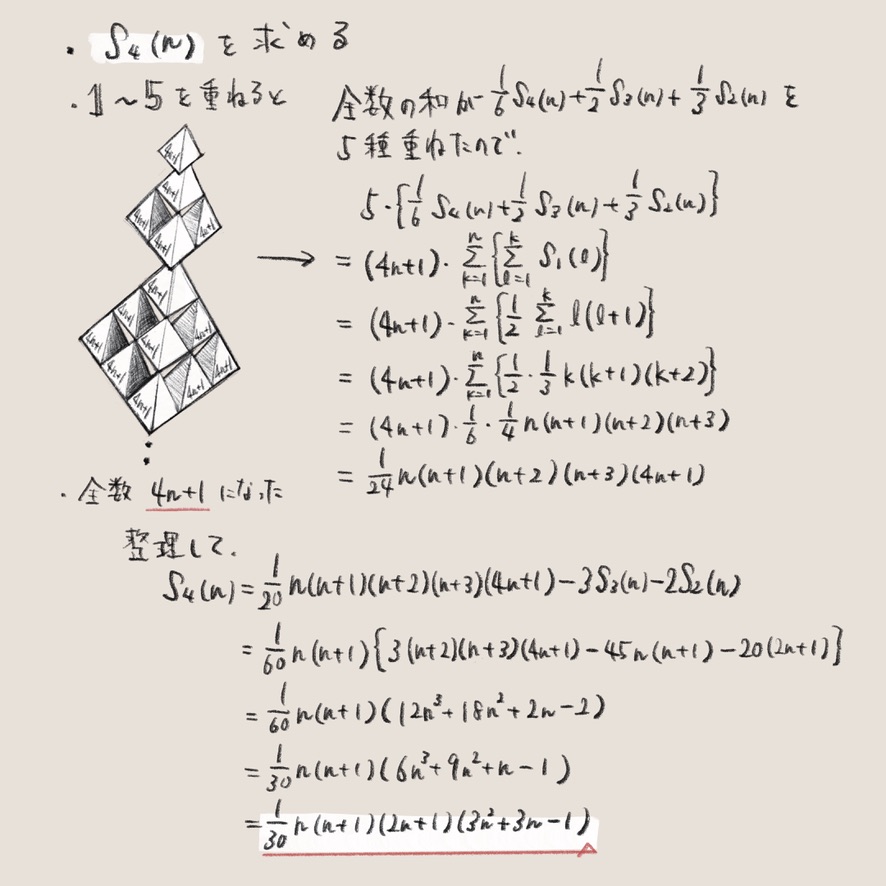 ・S₄(n) を求める
・1～5を重ねると
全数の和が 1/6 S₄(n) + 1/2 S₃(n) + 1/3 S₂(n) を
5種重ねたので、
5・{1/6 S₄(n) + 1/2 S₃(n) + 1/3 S₂(n)}
= (4n+1)・Σ_{k=1}^{n} {Σ_{l=1}^{k} S₁(l)}
= (4n+1)・Σ_{k=1}^{n} {1/2 Σ_{l=1}^{k} l(l+1)}
= (4n+1)・Σ_{k=1}^{n} {1/2・1/3 k(k+1)(k+2)}
= (4n+1)・1/6・1/4 n(n+1)(n+2)(n+3)
= 1/24 n(n+1)(n+2)(n+3)(4n+1)
4n+1
4n+1
4n+1 4n+1
4n+1
4n+1 4n+1
4n+1 4n+1 4n+1
・全数 4n+1 になった
整理して、
S₄(n) = 1/20 n(n+1)(n+2)(n+3)(4n+1) − 3S₃(n) − 2S₂(n)
= 1/60 n(n+1){3(n+2)(n+3)(4n+1) − 45n(n+1) − 20(2n+1)}
= 1/60 n(n+1)(12n³ + 18n² + 2n − 2)
= 1/30 n(n+1)(6n³ + 9n² + n − 1)
= 1/30 n(n+1)(2n+1)(3n² + 3n − 1)